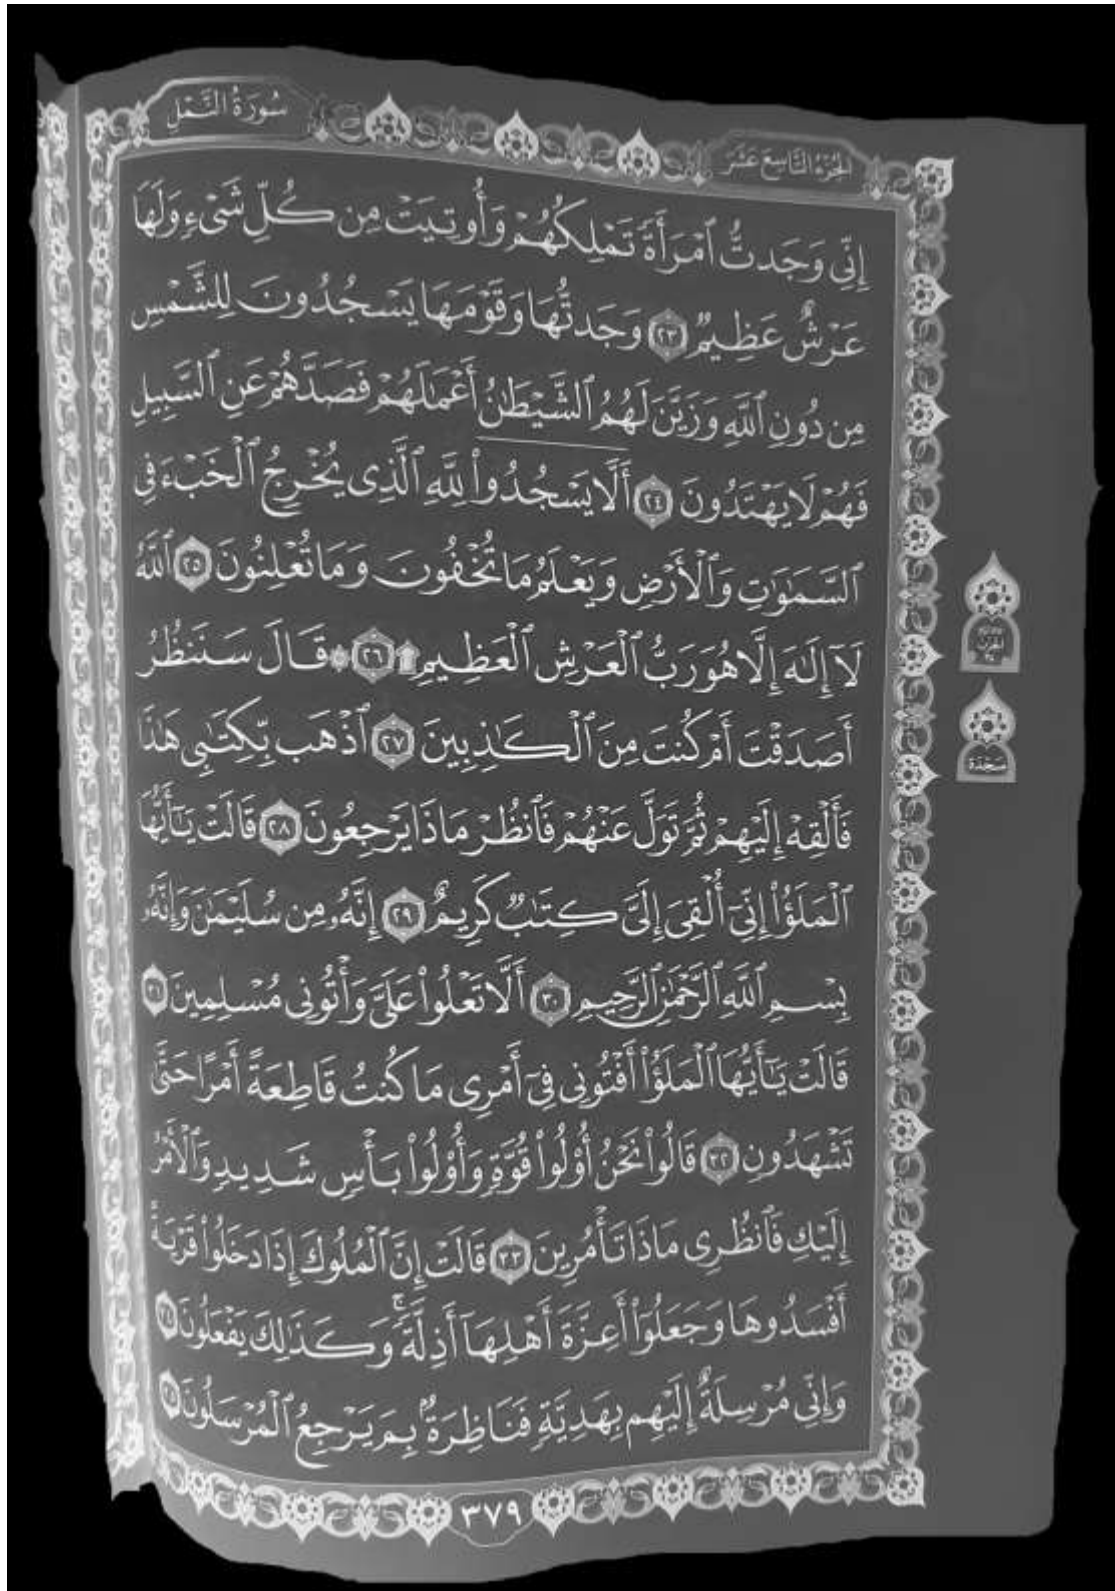 سُورَةُ النَّمْلِ
الجُزْءُ التَّاسِعَ عَشَرَ
إِنِّي وَجَدتُّ ٱمْرَأَةً تَمْلِكُهُمْ وَأُوتِيَتْ مِن كُلِّ شَيْءٍ وَلَهَا
عَرْشٌ عَظِيمٌ ٢٣ وَجَدتُّهَا وَقَوْمَهَا يَسْجُدُونَ لِلشَّمْسِ
مِن دُونِ ٱللَّهِ وَزَيَّنَ لَهُمُ ٱلشَّيْطَٰنُ أَعْمَٰلَهُمْ فَصَدَّهُمْ عَنِ ٱلسَّبِيلِ
فَهُمْ لَا يَهْتَدُونَ ٢٤ أَلَّا يَسْجُدُوا۟ لِلَّهِ ٱلَّذِى يُخْرِجُ ٱلْخَبْءَ فِى
ٱلسَّمَٰوَٰتِ وَٱلْأَرْضِ وَيَعْلَمُ مَا تُخْفُونَ وَمَا تُعْلِنُونَ ٢٥ ٱللَّهُ
لَآ إِلَٰهَ إِلَّا هُوَ رَبُّ ٱلْعَرْشِ ٱلْعَظِيمِ ۩ ٢٦ ۞ قَالَ سَنَنظُرُ
أَصَدَقْتَ أَمْ كُنتَ مِنَ ٱلْكَٰذِبِينَ ٢٧ ٱذْهَب بِّكِتَٰبِى هَٰذَا
فَأَلْقِهْ إِلَيْهِمْ ثُمَّ تَوَلَّ عَنْهُمْ فَٱنظُرْ مَاذَا يَرْجِعُونَ ٢٨ قَالَتْ يَٰٓأَيُّهَا
ٱلْمَلَؤُا۟ إِنِّىٓ أُلْقِىَ إِلَىَّ كِتَٰبٌ كَرِيمٌ ٢٩ إِنَّهُۥ مِن سُلَيْمَٰنَ وَإِنَّهُۥ
بِسْمِ ٱللَّهِ ٱلرَّحْمَٰنِ ٱلرَّحِيمِ ٣٠ أَلَّا تَعْلُوا۟ عَلَىَّ وَأْتُونِى مُسْلِمِينَ ٣١
قَالَتْ يَٰٓأَيُّهَا ٱلْمَلَؤُا۟ أَفْتُونِى فِىٓ أَمْرِى مَا كُنتُ قَاطِعَةً أَمْرًا حَتَّىٰ
تَشْهَدُونِ ٣٢ قَالُوا۟ نَحْنُ أُو۟لُوا۟ قُوَّةٍ وَأُو۟لُوا۟ بَأْسٍ شَدِيدٍ وَٱلْأَمْرُ
إِلَيْكِ فَٱنظُرِى مَاذَا تَأْمُرِينَ ٣٣ قَالَتْ إِنَّ ٱلْمُلُوكَ إِذَا دَخَلُوا۟ قَرْيَةً
أَفْسَدُوهَا وَجَعَلُوٓا۟ أَعِزَّةَ أَهْلِهَآ أَذِلَّةً ۖ وَكَذَٰلِكَ يَفْعَلُونَ ٣٤
وَإِنِّى مُرْسِلَةٌ إِلَيْهِم بِهَدِيَّةٍ فَنَاظِرَةٌۢ بِمَ يَرْجِعُ ٱلْمُرْسَلُونَ ٣٥
سَجْدَة
٣٧٩